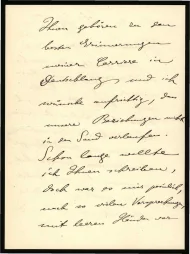 Ihnen gehören zu den
besten Erinnerungen
meiner Carriere in
Deutschland und ich
wünsche aufrichtig, dass
unsere Beziehungen nicht
in den Sand verlaufen.
Schon lange wollte
ich Ihnen schreiben,
doch war es mir peinlich,
nach so vielen Versprechungen
mit leeren Händen vor